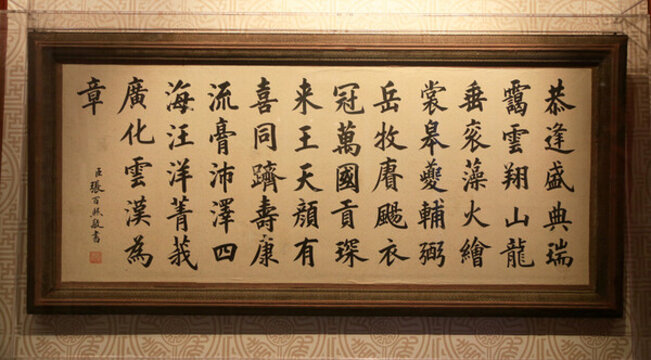 恭逢盛典瑞
靄雲翔山龍
垂衮藻火繪
裳皋夔輔弼
岳牧賡颺衣
冠萬國貢琛
来王天顏有
喜同躋壽康
流膏沛澤四
海汪洋菁莪
廣化雲漢為
章
臣張百熙敬書